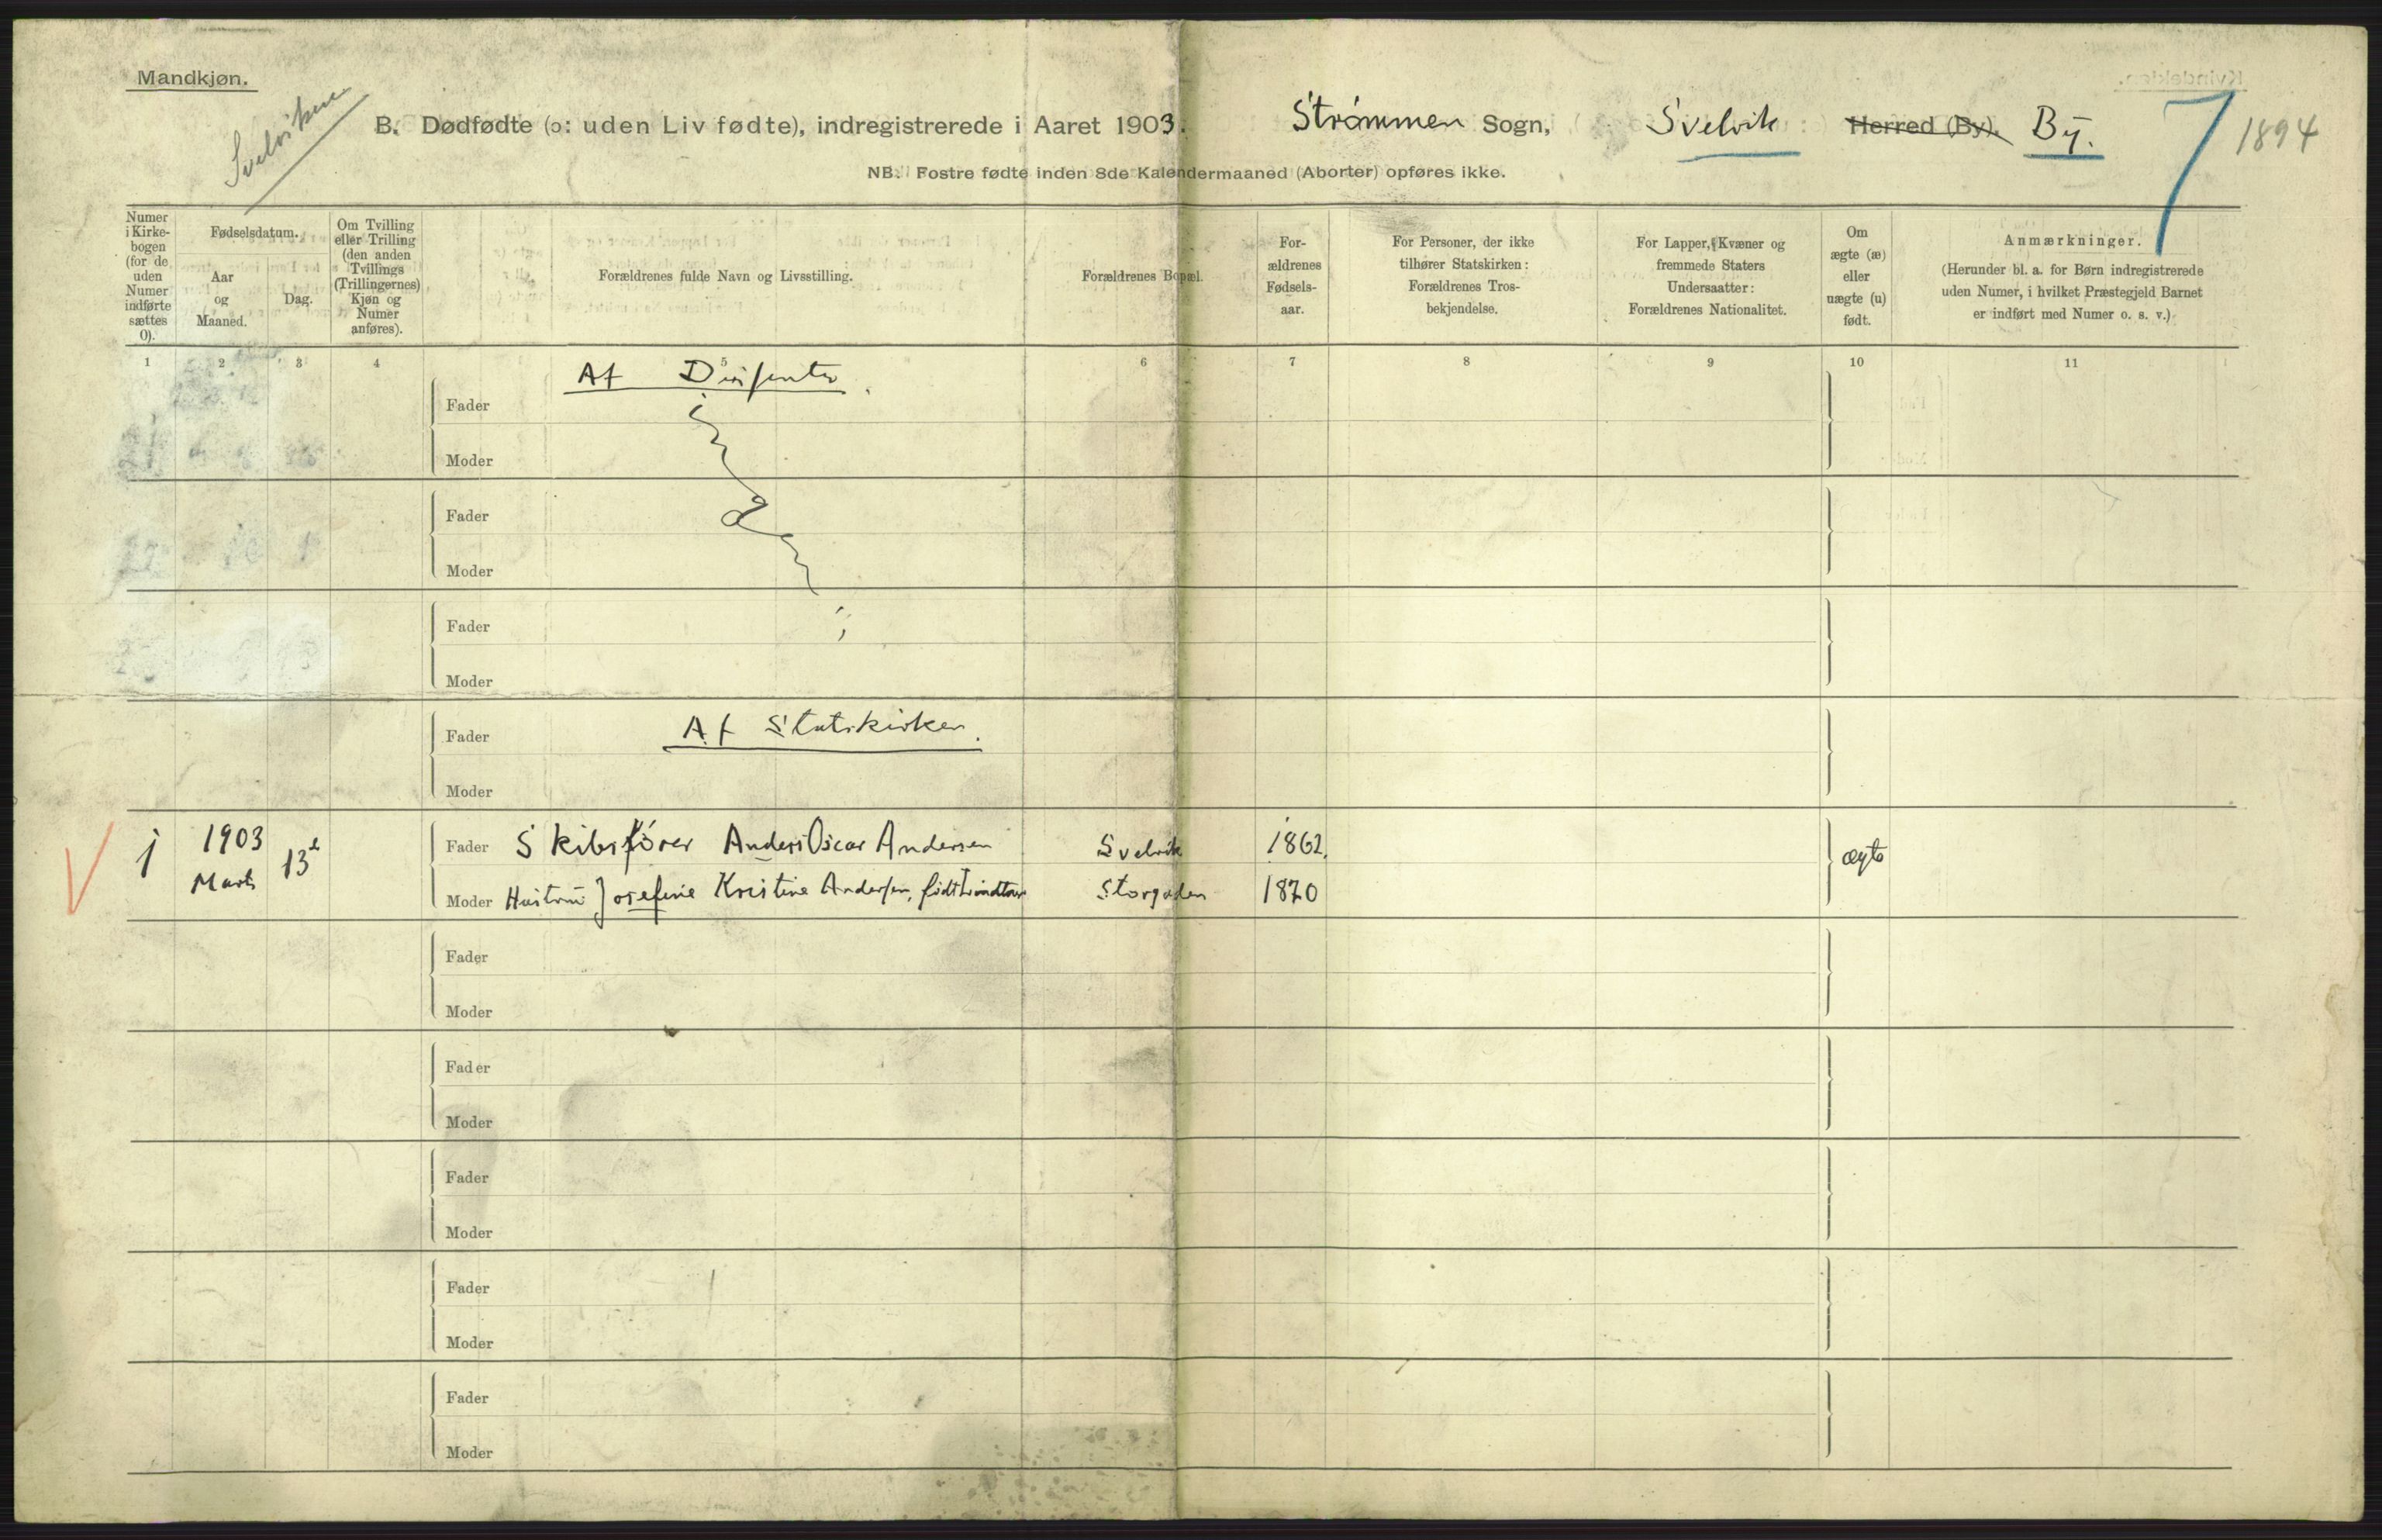 Mandkjøn.
Svelviken
B. Dødfødte (ɔ: uden Liv fødte), indregistrerede i Aaret 1903. Strømmen Sogn, Svelvik Herred (By). By. 7 1894
NB. Fostre fødte inden 8de Kalendermaaned (Aborter) opføres ikke.
Numer i Kirkebogen (for de uden Numer indførte sættes 0).
Fødselsdatum.
Aar og Maaned.
Dag.
Om Tvilling eller Trilling (den anden Tvillings (Trillingernes) Kjøn og Numer anføres).
Forældrenes fulde Navn og Livsstilling.
Forældrenes Bopæl.
Forældrenes Fødselsaar.
For Personer, der ikke tilhører Statskirken: Forældrenes Trosbekjendelse.
For Lapper, Kvæner og fremmede Staters Undersaatter: Forældrenes Nationalitet.
Om ægte (æ) eller uægte (u) født.
Anmærkninger.
(Herunder bl. a. for Børn indregistrerede uden Numer, i hvilket Præstegjeld Barnet er indført med Numer o. s. v.)
1 2 3 4 5 6 7 8 9 10 11
Af Dissenter.
Fader
Moder
Fader
Moder
Fader
Moder
Af Statskirken.
Fader
Moder
1 1903 13 Fader Skibsfører Anders Oscar Andersen Svelvik 1862. ægte
Marts Moder Hustru Josefine Kristine Andersen, født Storgaden 1870
Fader
Moder
Fader
Moder
Fader
Moder
Fader
Moder
Fader
Moder